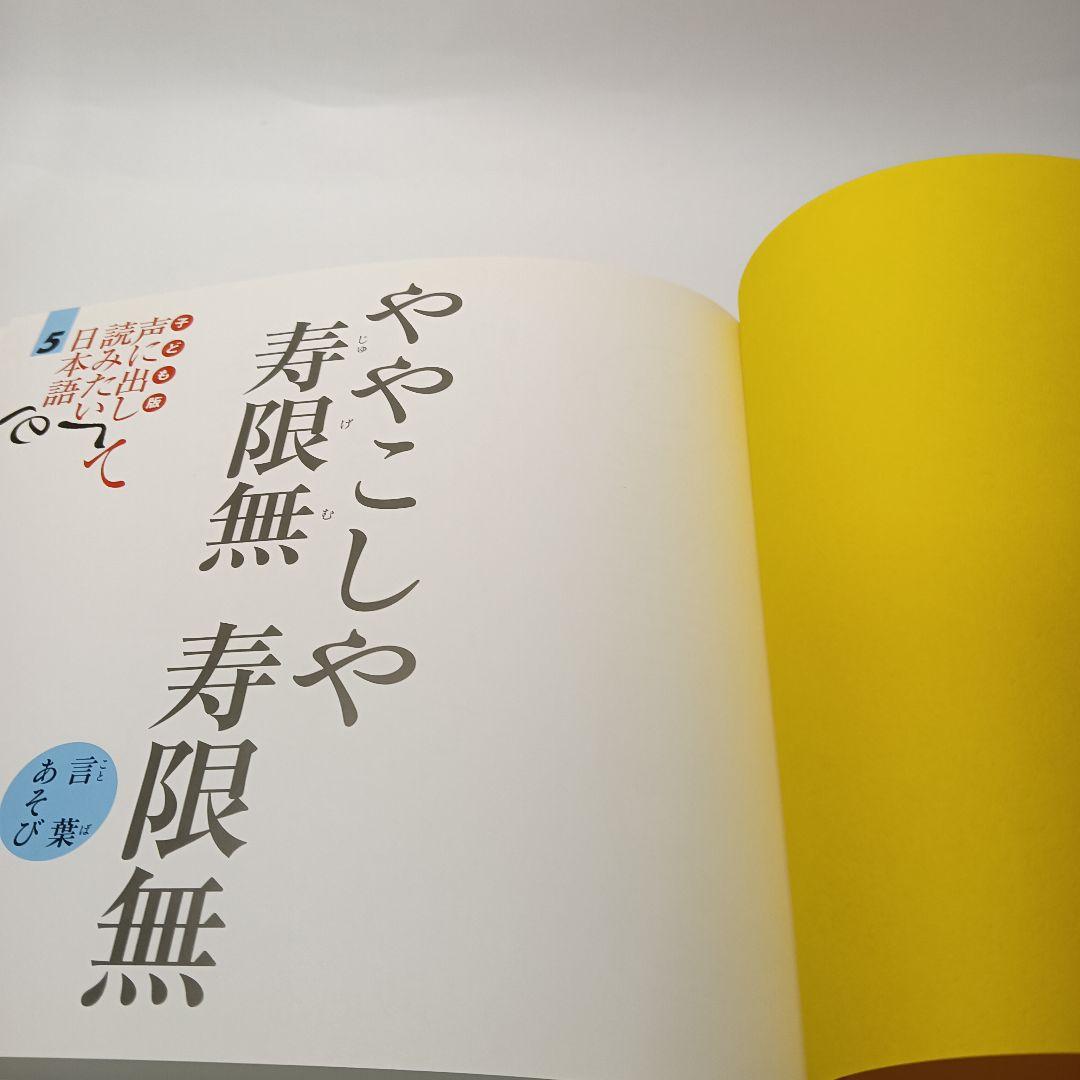 ややこしや
寿限無 寿限無
じゅげむ
子ども版
声に出して
読みたい
日本語
5
言葉
ことば
あそび